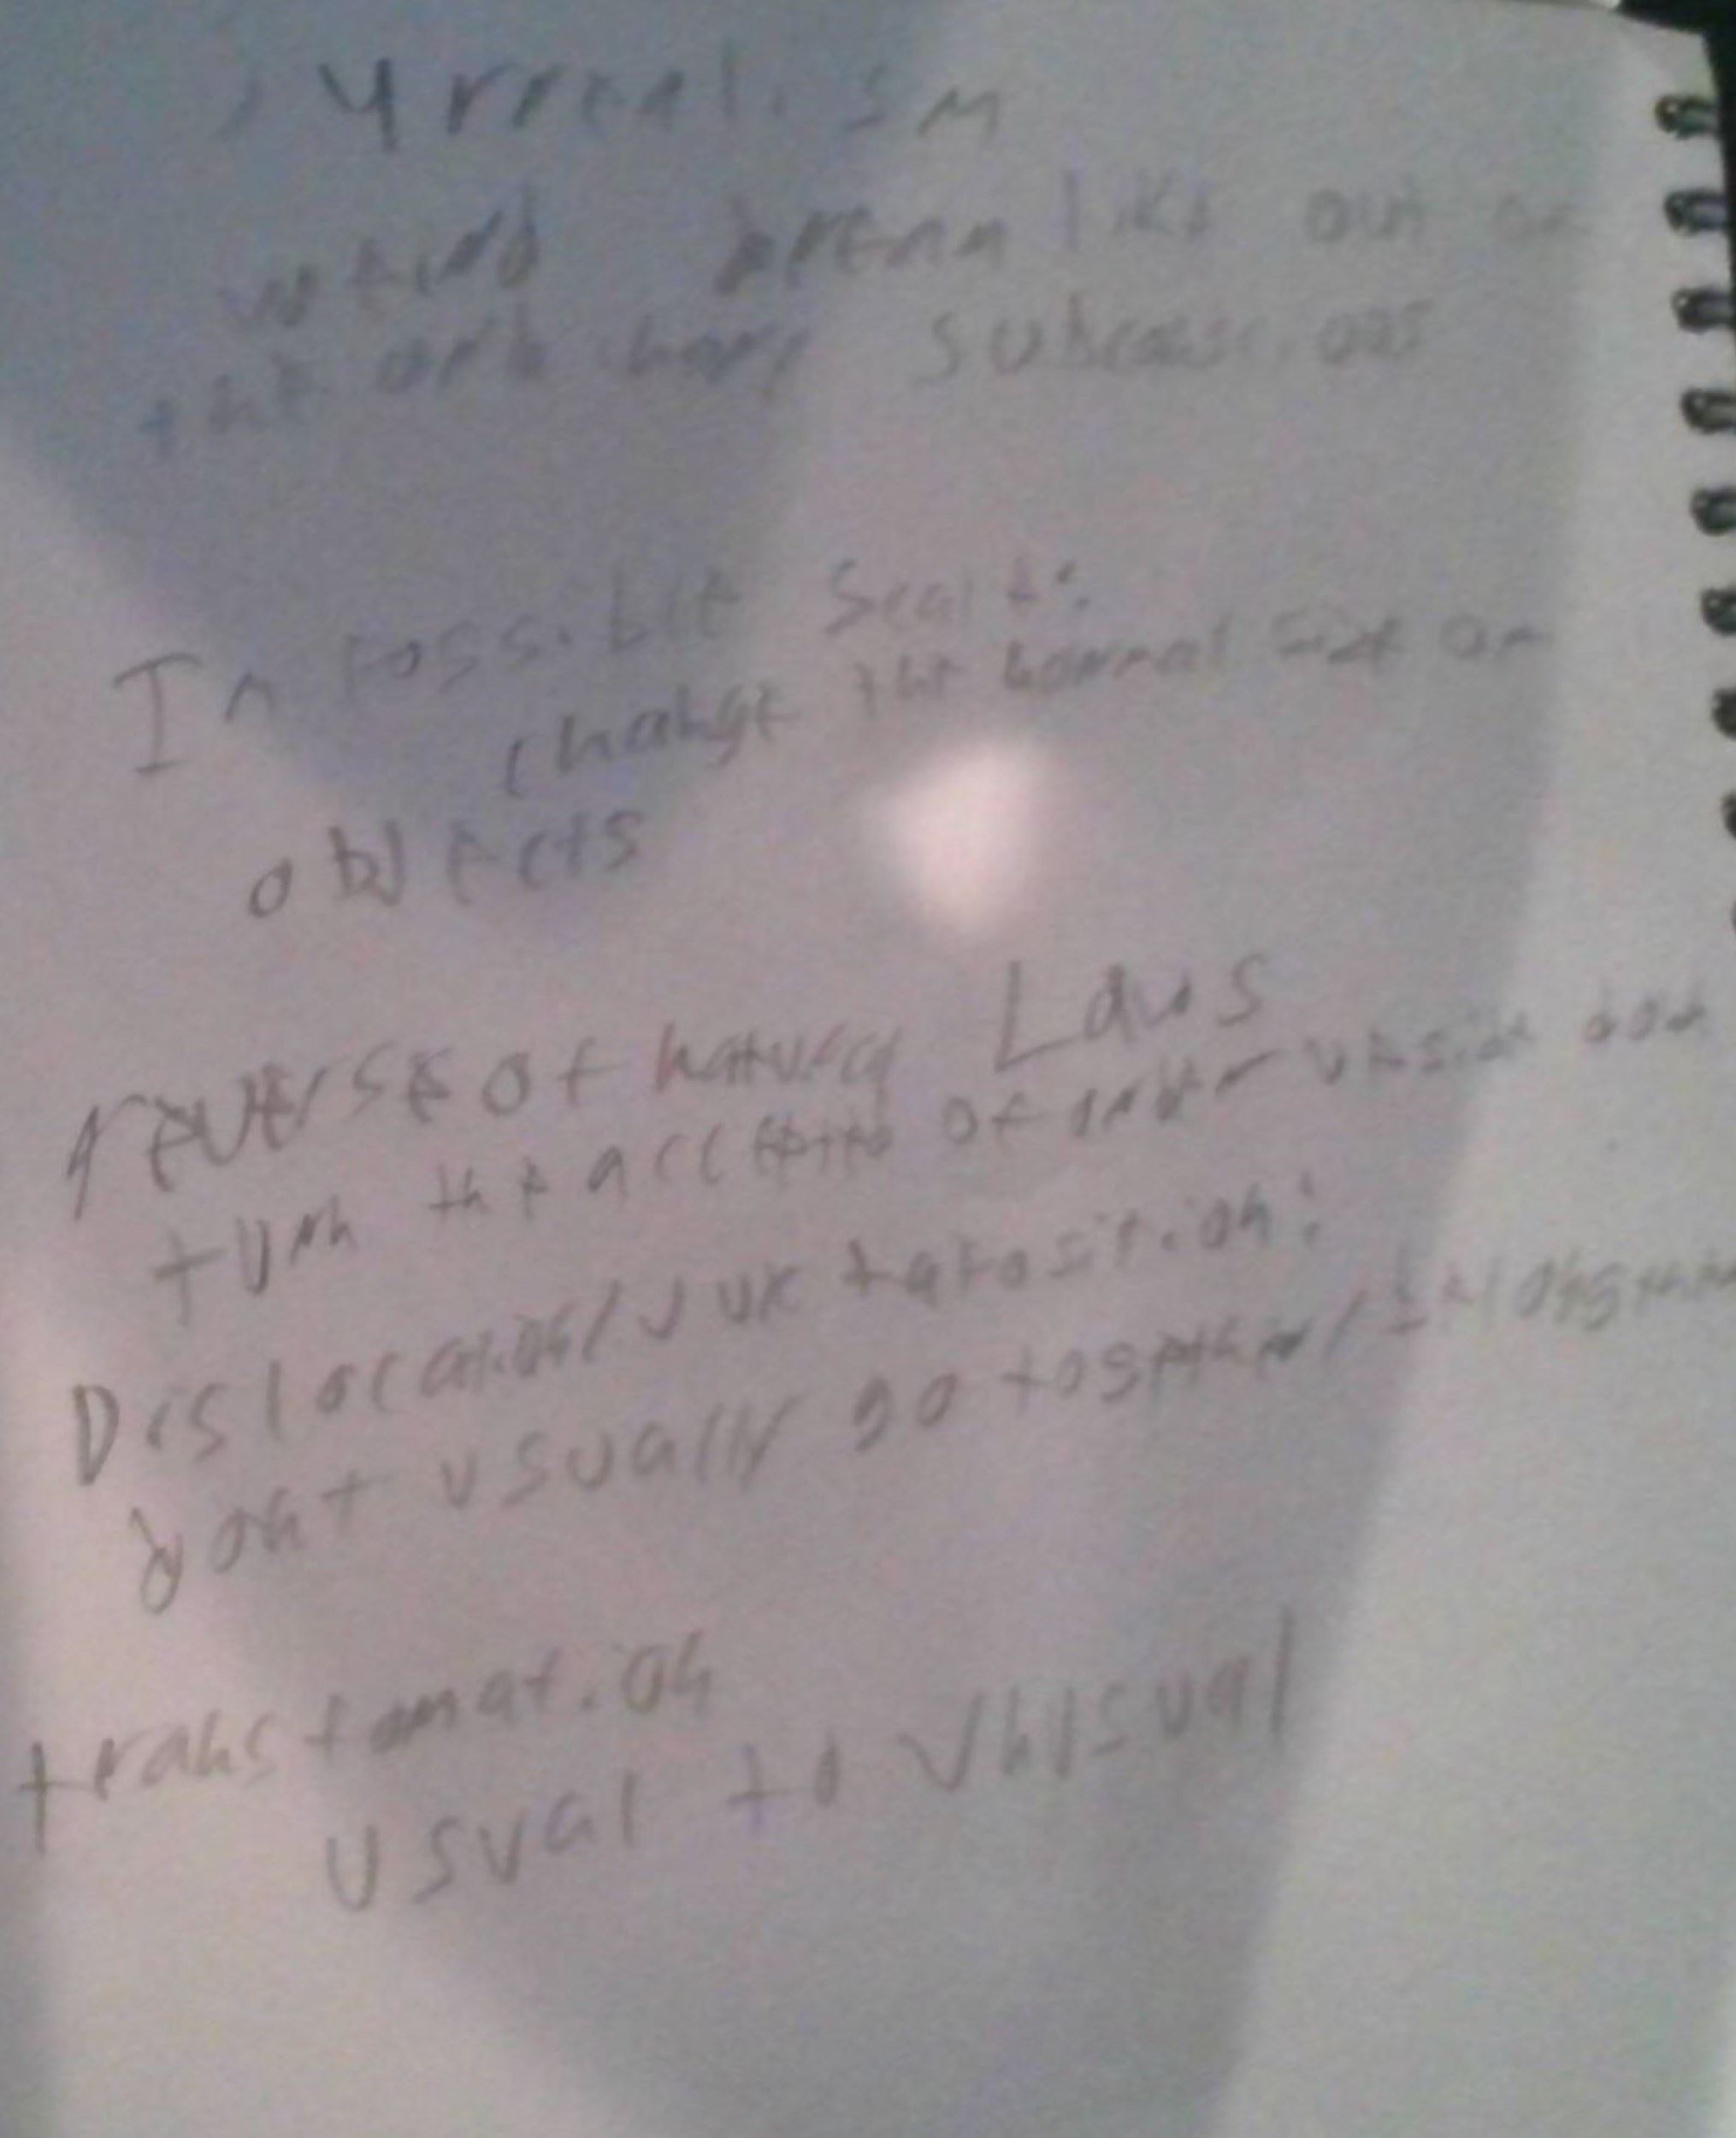 surrealism
weird dream like out of
the ordinary subconscious
Impossible Scale:
change the normal size of
objects
reverse of natural Laws
turn the accepted of order upside dow
Dislocation/Juxtaposition:
dont usually go together/
transfomation
usual to unusual